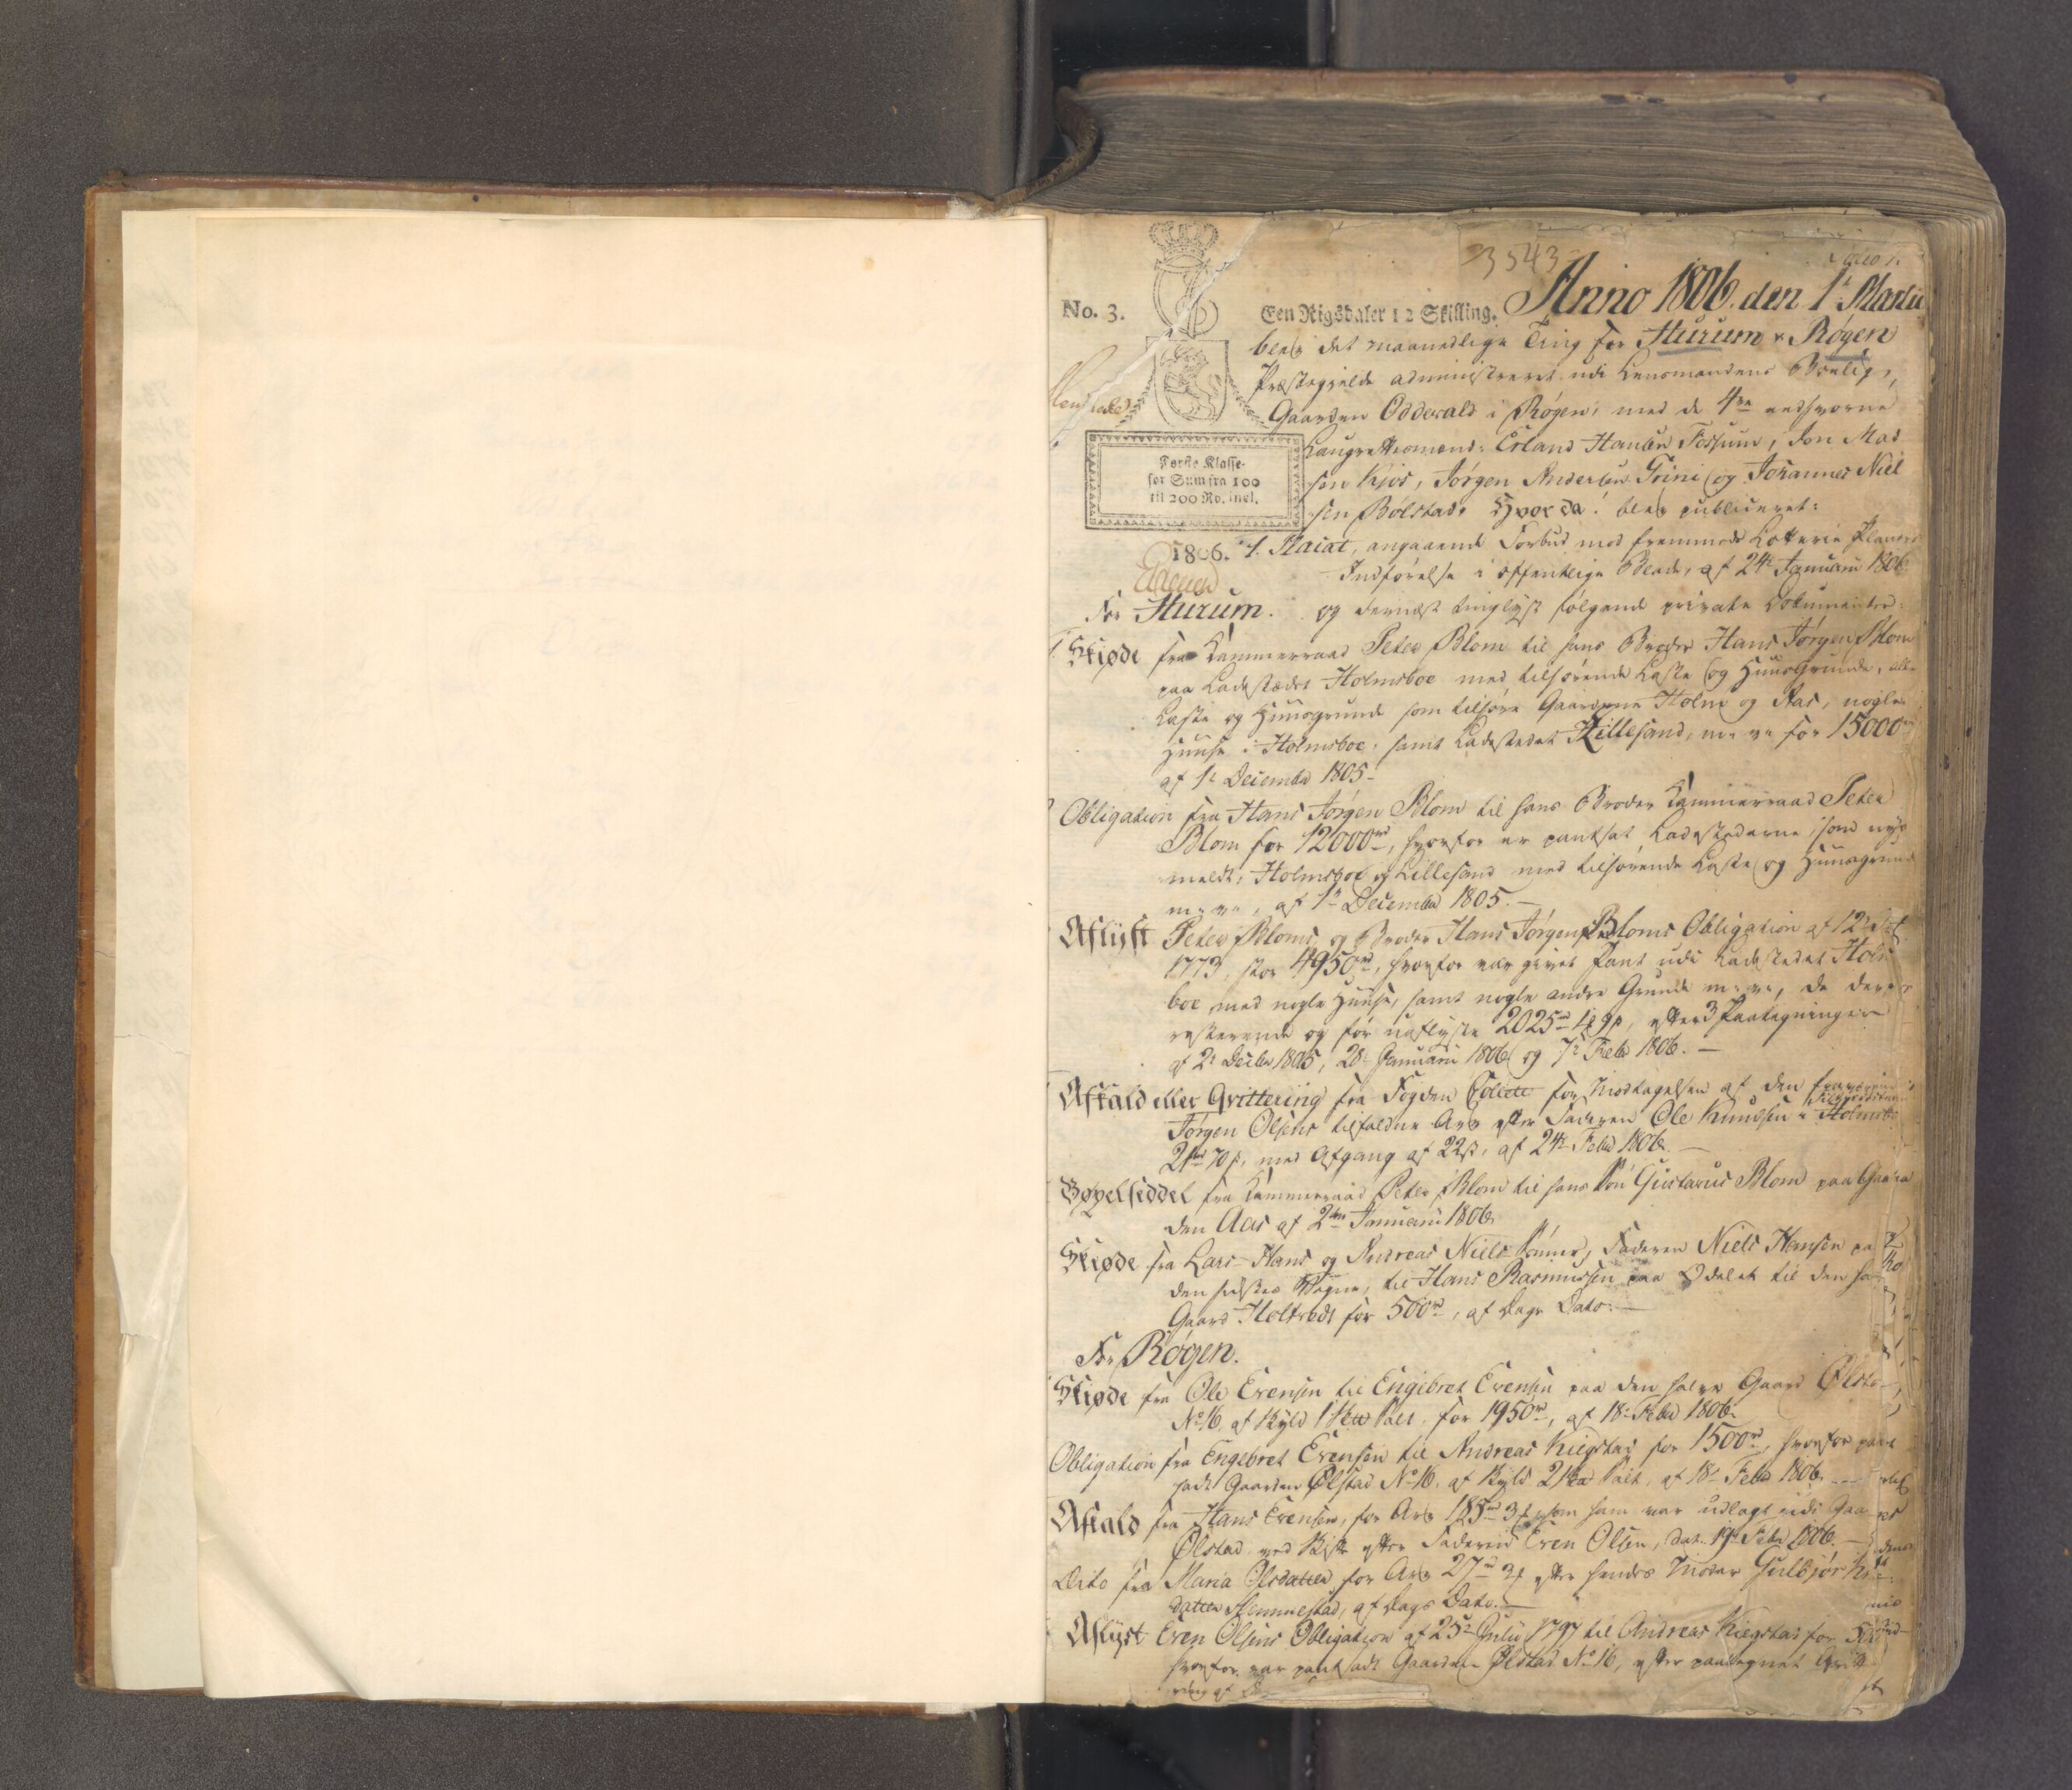 3543
No. 3.
Een Rigsdaler 12 Skilling.
Anno 1806. den 1e Martii
blev det maanedlige Ting for Hurum & Røgen
Præstegielde administreret udi Lensmandens Boelig,
Gaarden Oddevald i Røgen, med de 4re eedsvorne
Laugrettesmænd: Erland Hansen Fossum, Jon Mad
sen Kjos, Jørgen Andersen Grini og Johannes Niel
sen Bølstad. Hvor da blev publiceret:
Første Klasse.
for Sum fra 100
til 200 Rd. incl.
1806.
1. Placat, angaaende Forbud mod fremmede Lotterie Planers
Indførelse i offentlige Blade, af 24de Januarii 1806.
For Hurum. og dernæst tinglyst følgende private Dokumenter:
Skiøde fra Kammerraad Peter Blom til hans Broder Hans Jørgen Blom
paa Ladestædet Holmsboe med tilhørende Laste og Huusgrunde, alle
Laste og Huusgrunde som tilhøre Gaardene Holm og Aas, nogle
Huuse i Holmsboe, samt Ladestedet Lillesand, m: v: for 15000rd
af 1e December 1805.
Obligation fra Hans Jørgen Blom til hans Broder Kammerraad Peter
Blom for 12000rd, hvorfor er pantsat Ladestederne, som nys
meldt, Holmsboe og Lillesand med tilhørende Laste og Huusgrund
m: v:, af 1e December 1805.
Aflyst Peter Bloms og Broder Hans Jørgen Bloms Obligation af 12te
1773, stor 4950rd, hvorfor var givet Pant udi Ladestedet Holms
boe med nogle Huuse, samt nogle andre Grunde m: v:, de
resterende og før uaflyste 2025rd efter 3 Paategninger
af 2e Decbr 1805, 28e Januarii 1806 og 7e Febr 1806.
Afkald eller Qvittering fra Fogden Collett for Modtagelsen af den fraværende
Jørgen Olsens tilfaldne Arv efter Faderen Ole Knudsen
70 s, med Afgang af 22 s, af 24e Febr 1806.
Bøxelseddel fra Kammerraad Peter Blom til hans Søn Gustavus Blom paa Gaar
den Aas af 2den Januarii 1806.
Skiøde fra Lars Hans og Andreas Niels Sønner, Faderen Niels Hansen paa
den sidstes Vegne, til Hans Rasmussen paa Odelet til den
Gaard Holtebek for 500rd, af Dags Dato.
For Røgen.
Skiøde fra Ole Evensen til Engebret Evensen paa den halve Gaard Ølsta
No 16, af Skyld 1 Salt for 1950rd, af 18e Febr 1806.
Obligation fra Engebret Evensen til Andreas Kiegstad for 1500rd, hvorfor pant
sadt Gaarden Ølstad No 16, af Skyld 2 Salt, af 18e Febr 1806.
Afkald fra Hans Evensen, for Arv 185rd som ham var udlagt udi Gaar
Ølstad ved Skifte efter Faderen Even Olsen, dat. 19e Febr 1806.
Dito fra Maria Olsdatter for Arv 27rd efter hendes Moder Gulbjør
datter af Dags Dato.
Aflyst Even Olsens Obligation af 25e Julii 1797 til Andreas Kiegstad for
hvorfor var pantsadt Gaarden Ølstad No 16, efter paategnet Qvitte
ring af